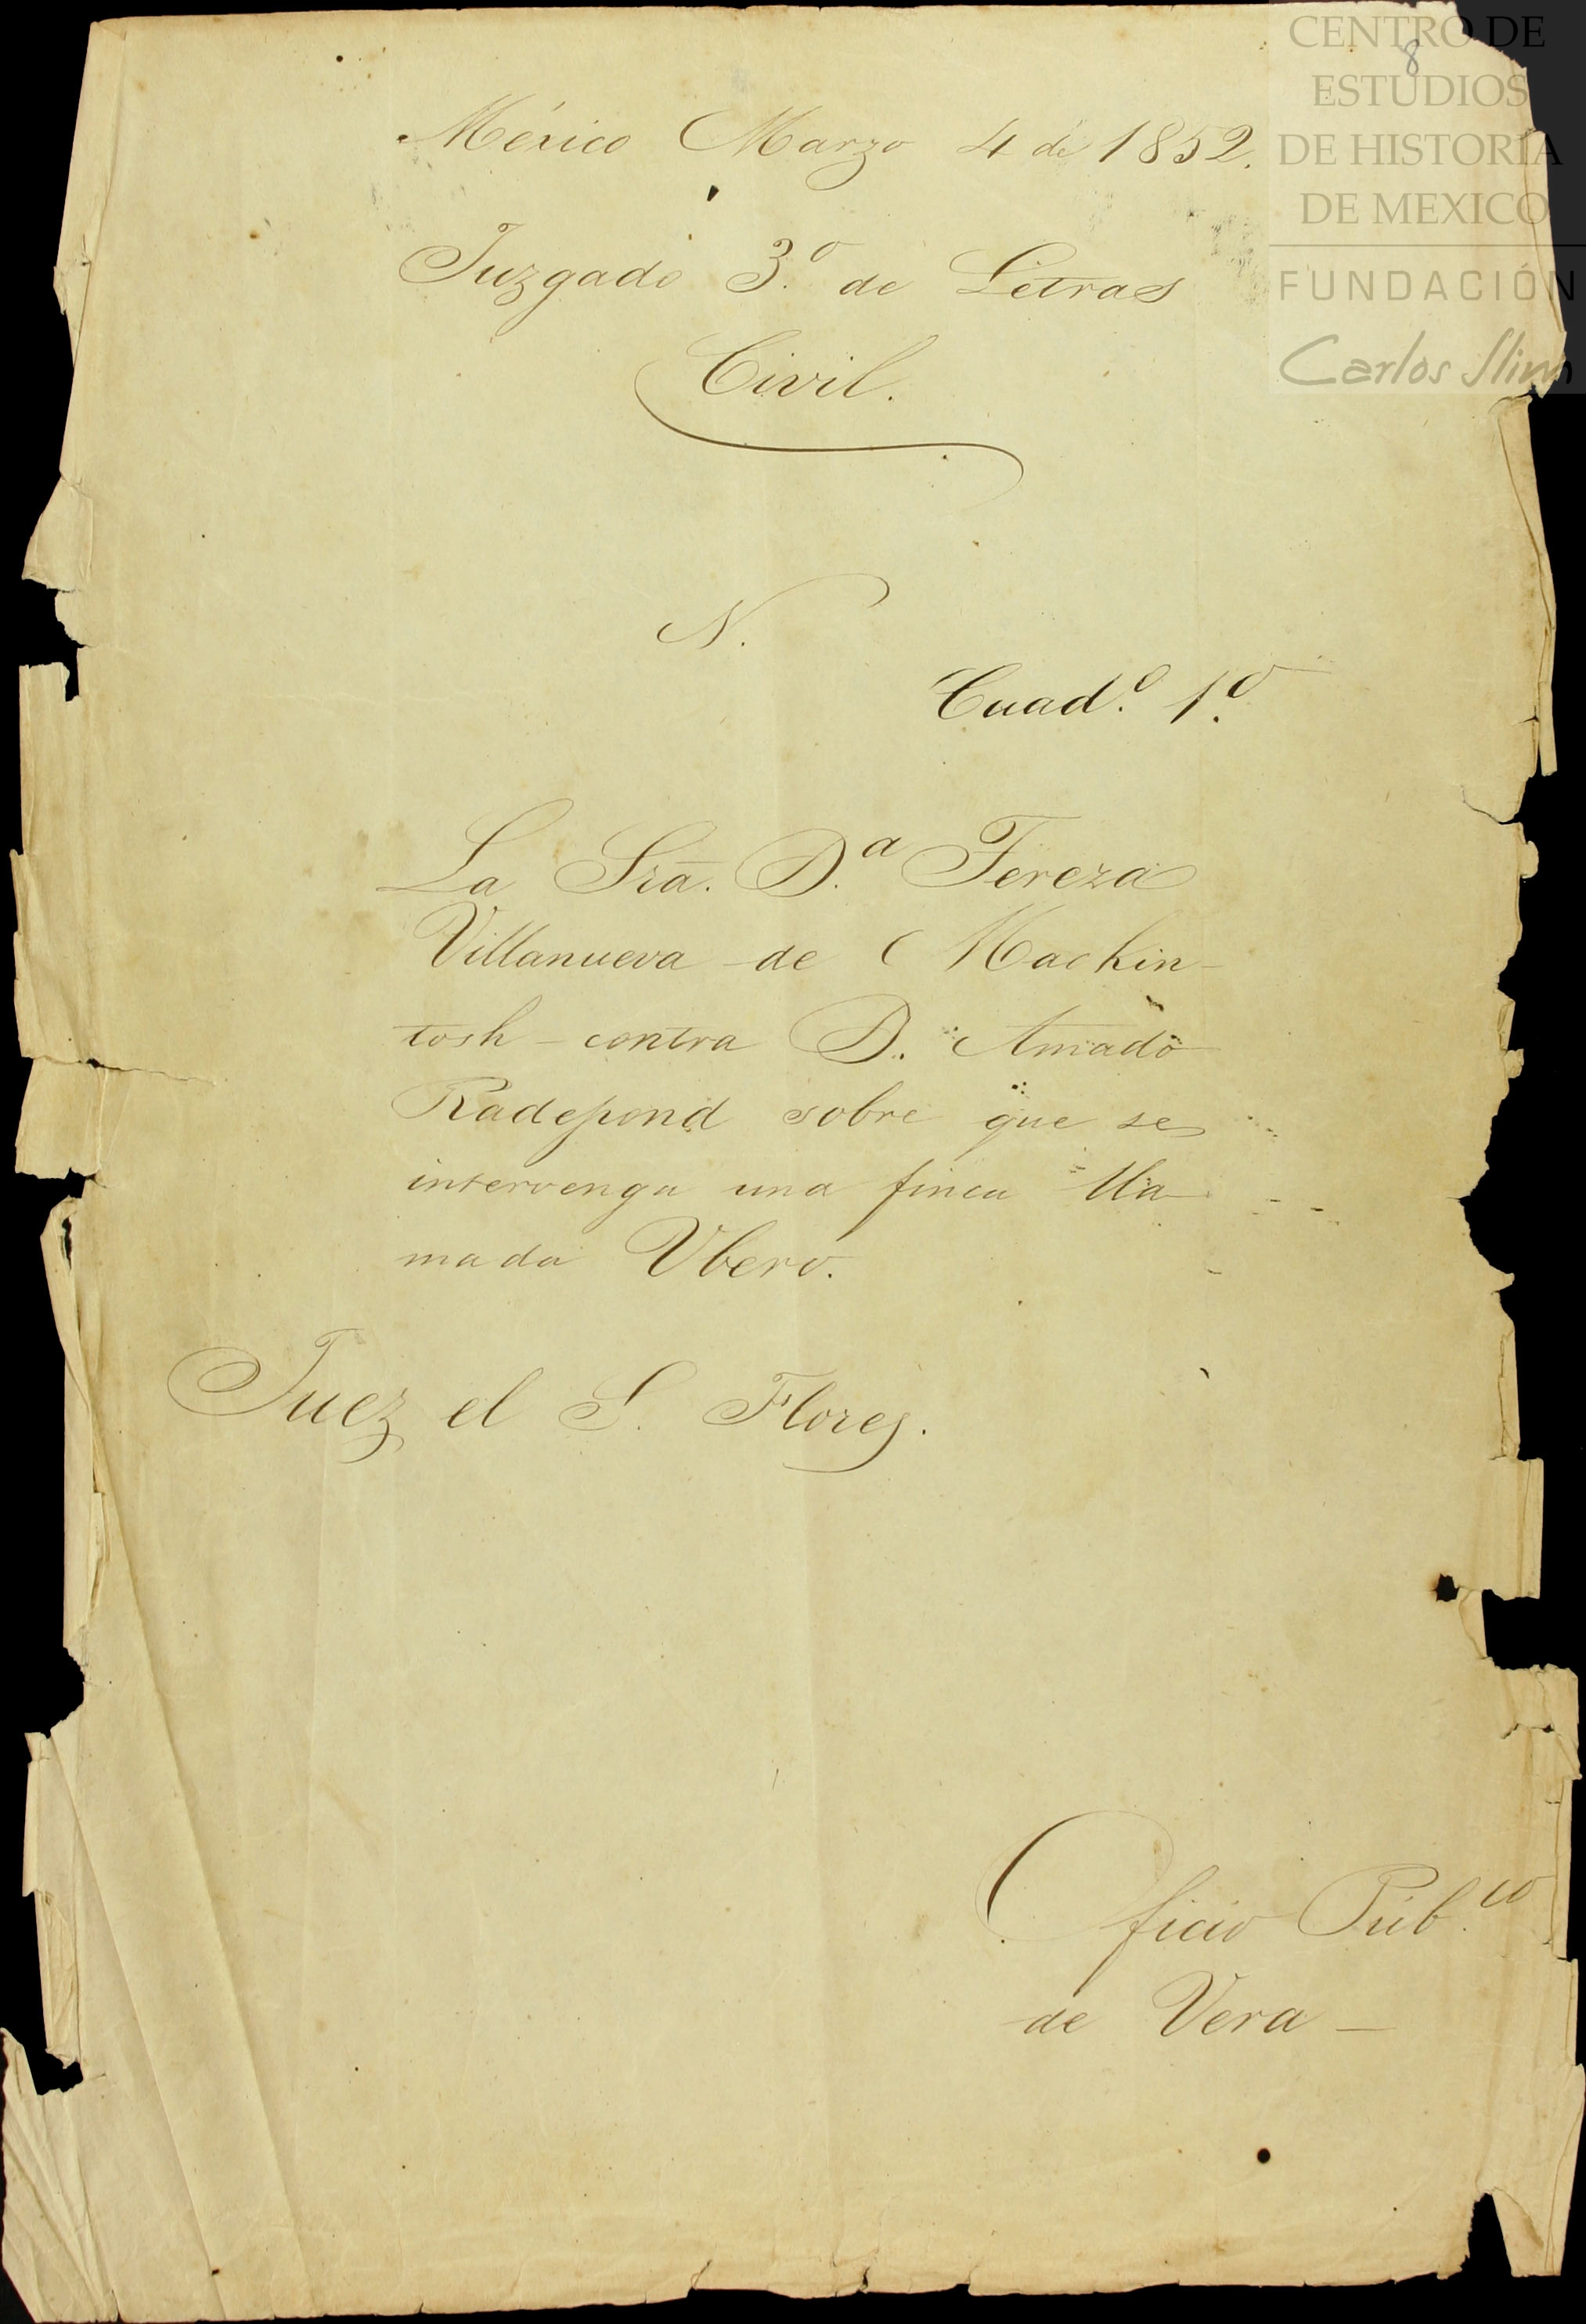 CENTRO DE
ESTUDIOS
DE HISTORIA
DE MEXICO
FUNDACIÓN
Carlos Slim
8
México Marzo 4 de 1852.
Juzgado 3.º de Letras
Civil.
N.
Cuad.º 1.º
La Sra. D.ª Tereza
Villanueva de Mackin-
tosh - contra D. Amado
Radepond sobre que se
intervenga una finca lla
mada Ubero.
Juez el S. Flores.
Oficio Púb.co
de Vera -